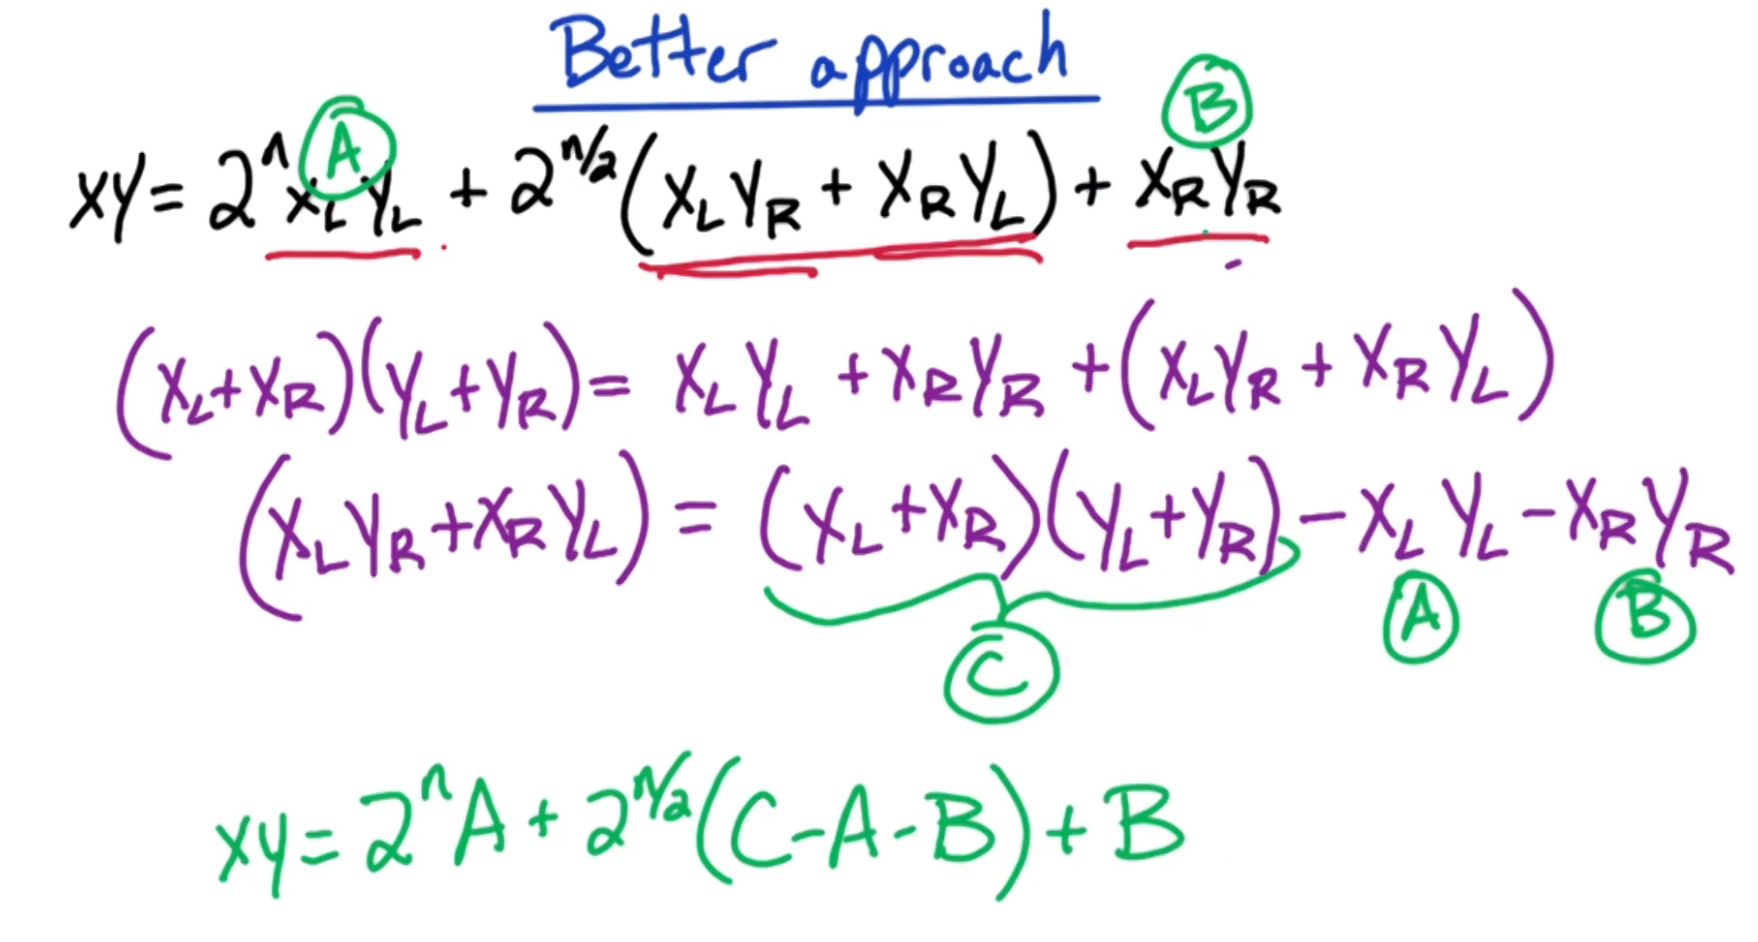 Better approach
A B
xy = 2^n x_L y_L + 2^{n/2} (x_L y_R + x_R y_L) + x_R y_R
(x_L + x_R)(y_L + y_R) = x_L y_L + x_R y_R + (x_L y_R + x_R y_L)
(x_L y_R + x_R y_L) = (x_L + x_R)(y_L + y_R) - x_L y_L - x_R y_R
C A B
xy = 2^n A + 2^{n/2} (C - A - B) + B